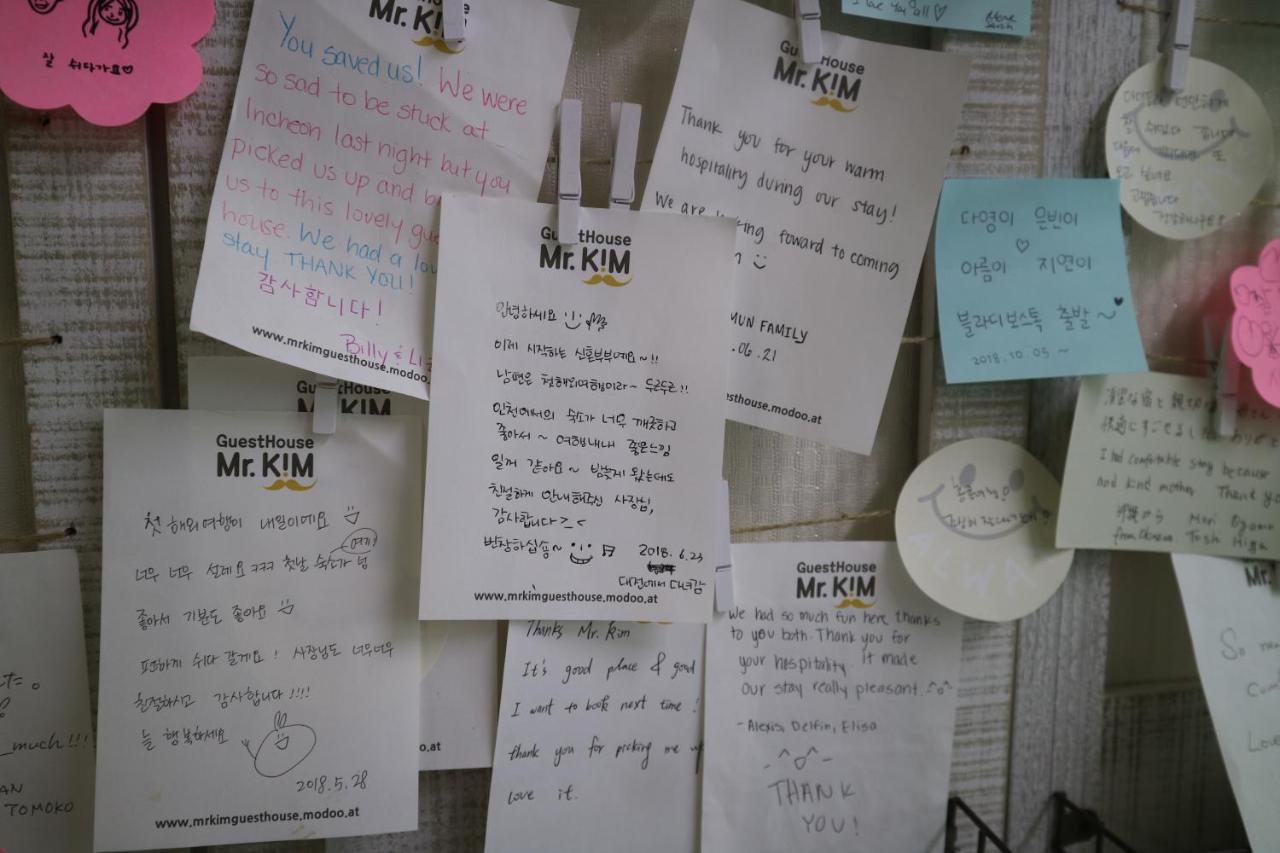 잘 쉬다가요♡
Mr. K!M
You saved us! We were
so sad to be stuck at
Incheon last night but you
picked us up and
us to this lovely
house. We had a
stay THANK YOU!
감사합니다!
Billy &
www.mrkimguesthouse.modoo.
GuestHouse
Mr. K!M
Thank you for your warm
hospitality during our stay!
We are foward to coming
FAMILY
.06.21
guesthouse.modoo.at
I love you all ♡
다영이 은빈이
♡
아름이 지연이
블라디보스톡 출발~
2018.10.05~
GuestHouse
Mr. K!M
안녕하세요
이제 시작하는 신혼부부예요~!!
남편은 첫해외여행이라~ 두근두근!!
인천에서의 숙소가 너무 깨끗하고
좋아서~ 여행내내 좋은느낌
일꺼 같아요~ 밤늦게 왔는데도
친절하게 안내해주신 사장님,
감사합니다>_<
번창하십숑~
2018.6.23
대전에서 다녀감
www.mrkimguesthouse.modoo.at
GuestHouse
Mr. K!M
첫 해외여행이 내일이에요
여기
너무 너무 설레요 ㅋㅋㅋ 첫날 숙소가 넘
좋아서 기분도 좋아요
편하게 쉬다 갈게요! 사장님도 너무너무
친절하시고 감사합니다!!!!
늘 행복하세요
2018.5.28
www.mrkimguesthouse.modoo.at
much!!!
TOMOKO
.at
Thanks Mr. Kim
It's good place & good
I want to book next time!
thank you for picking me up
love it.
GuestHouse
Mr. K!M
We had so much fun here thanks
to you both. Thank you for
your hospitality. it made
our stay really pleasant. ^o^
- Alexis, Delfin, Elisa
THANK
YOU!
I had comfortable stay because
and kind mother. Thank
from Okinawa
Mr.
So
Love